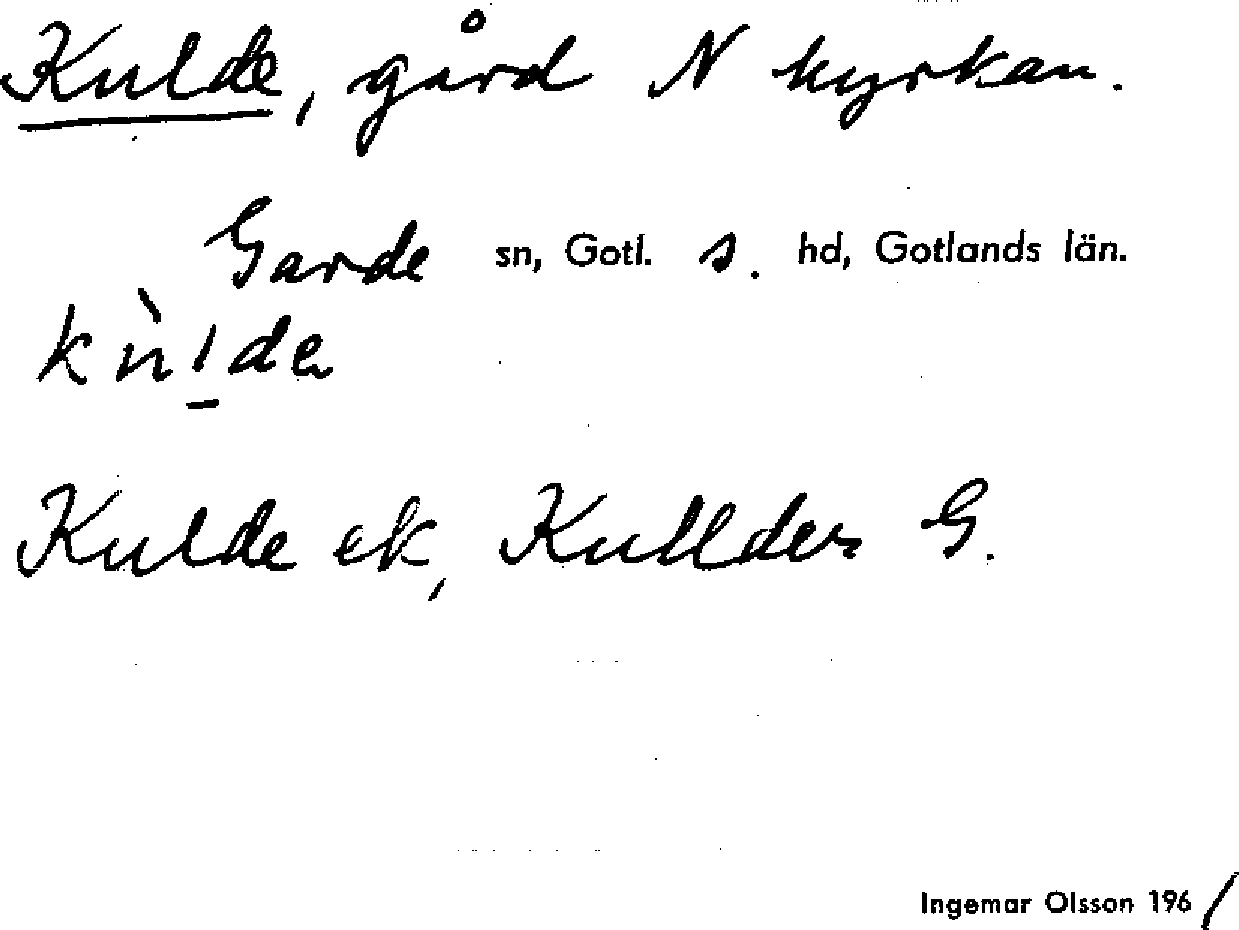 Kulde, gård N kyrkan.
Garde sn, Gotl. s. hd, Gotlands län.
kùlde
Kulde ek, Kullder G.
Ingemar Olsson 1961